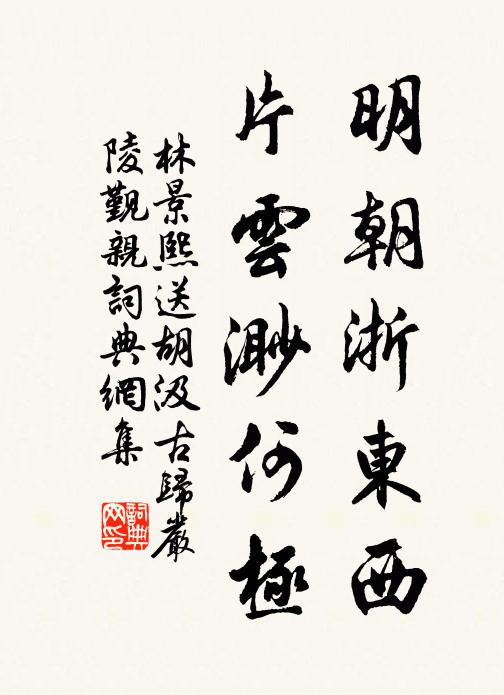 明朝浙東西
片雲渺何極
林景熙送胡汲古歸嚴
陵覲親詞典網集
詞典
网印